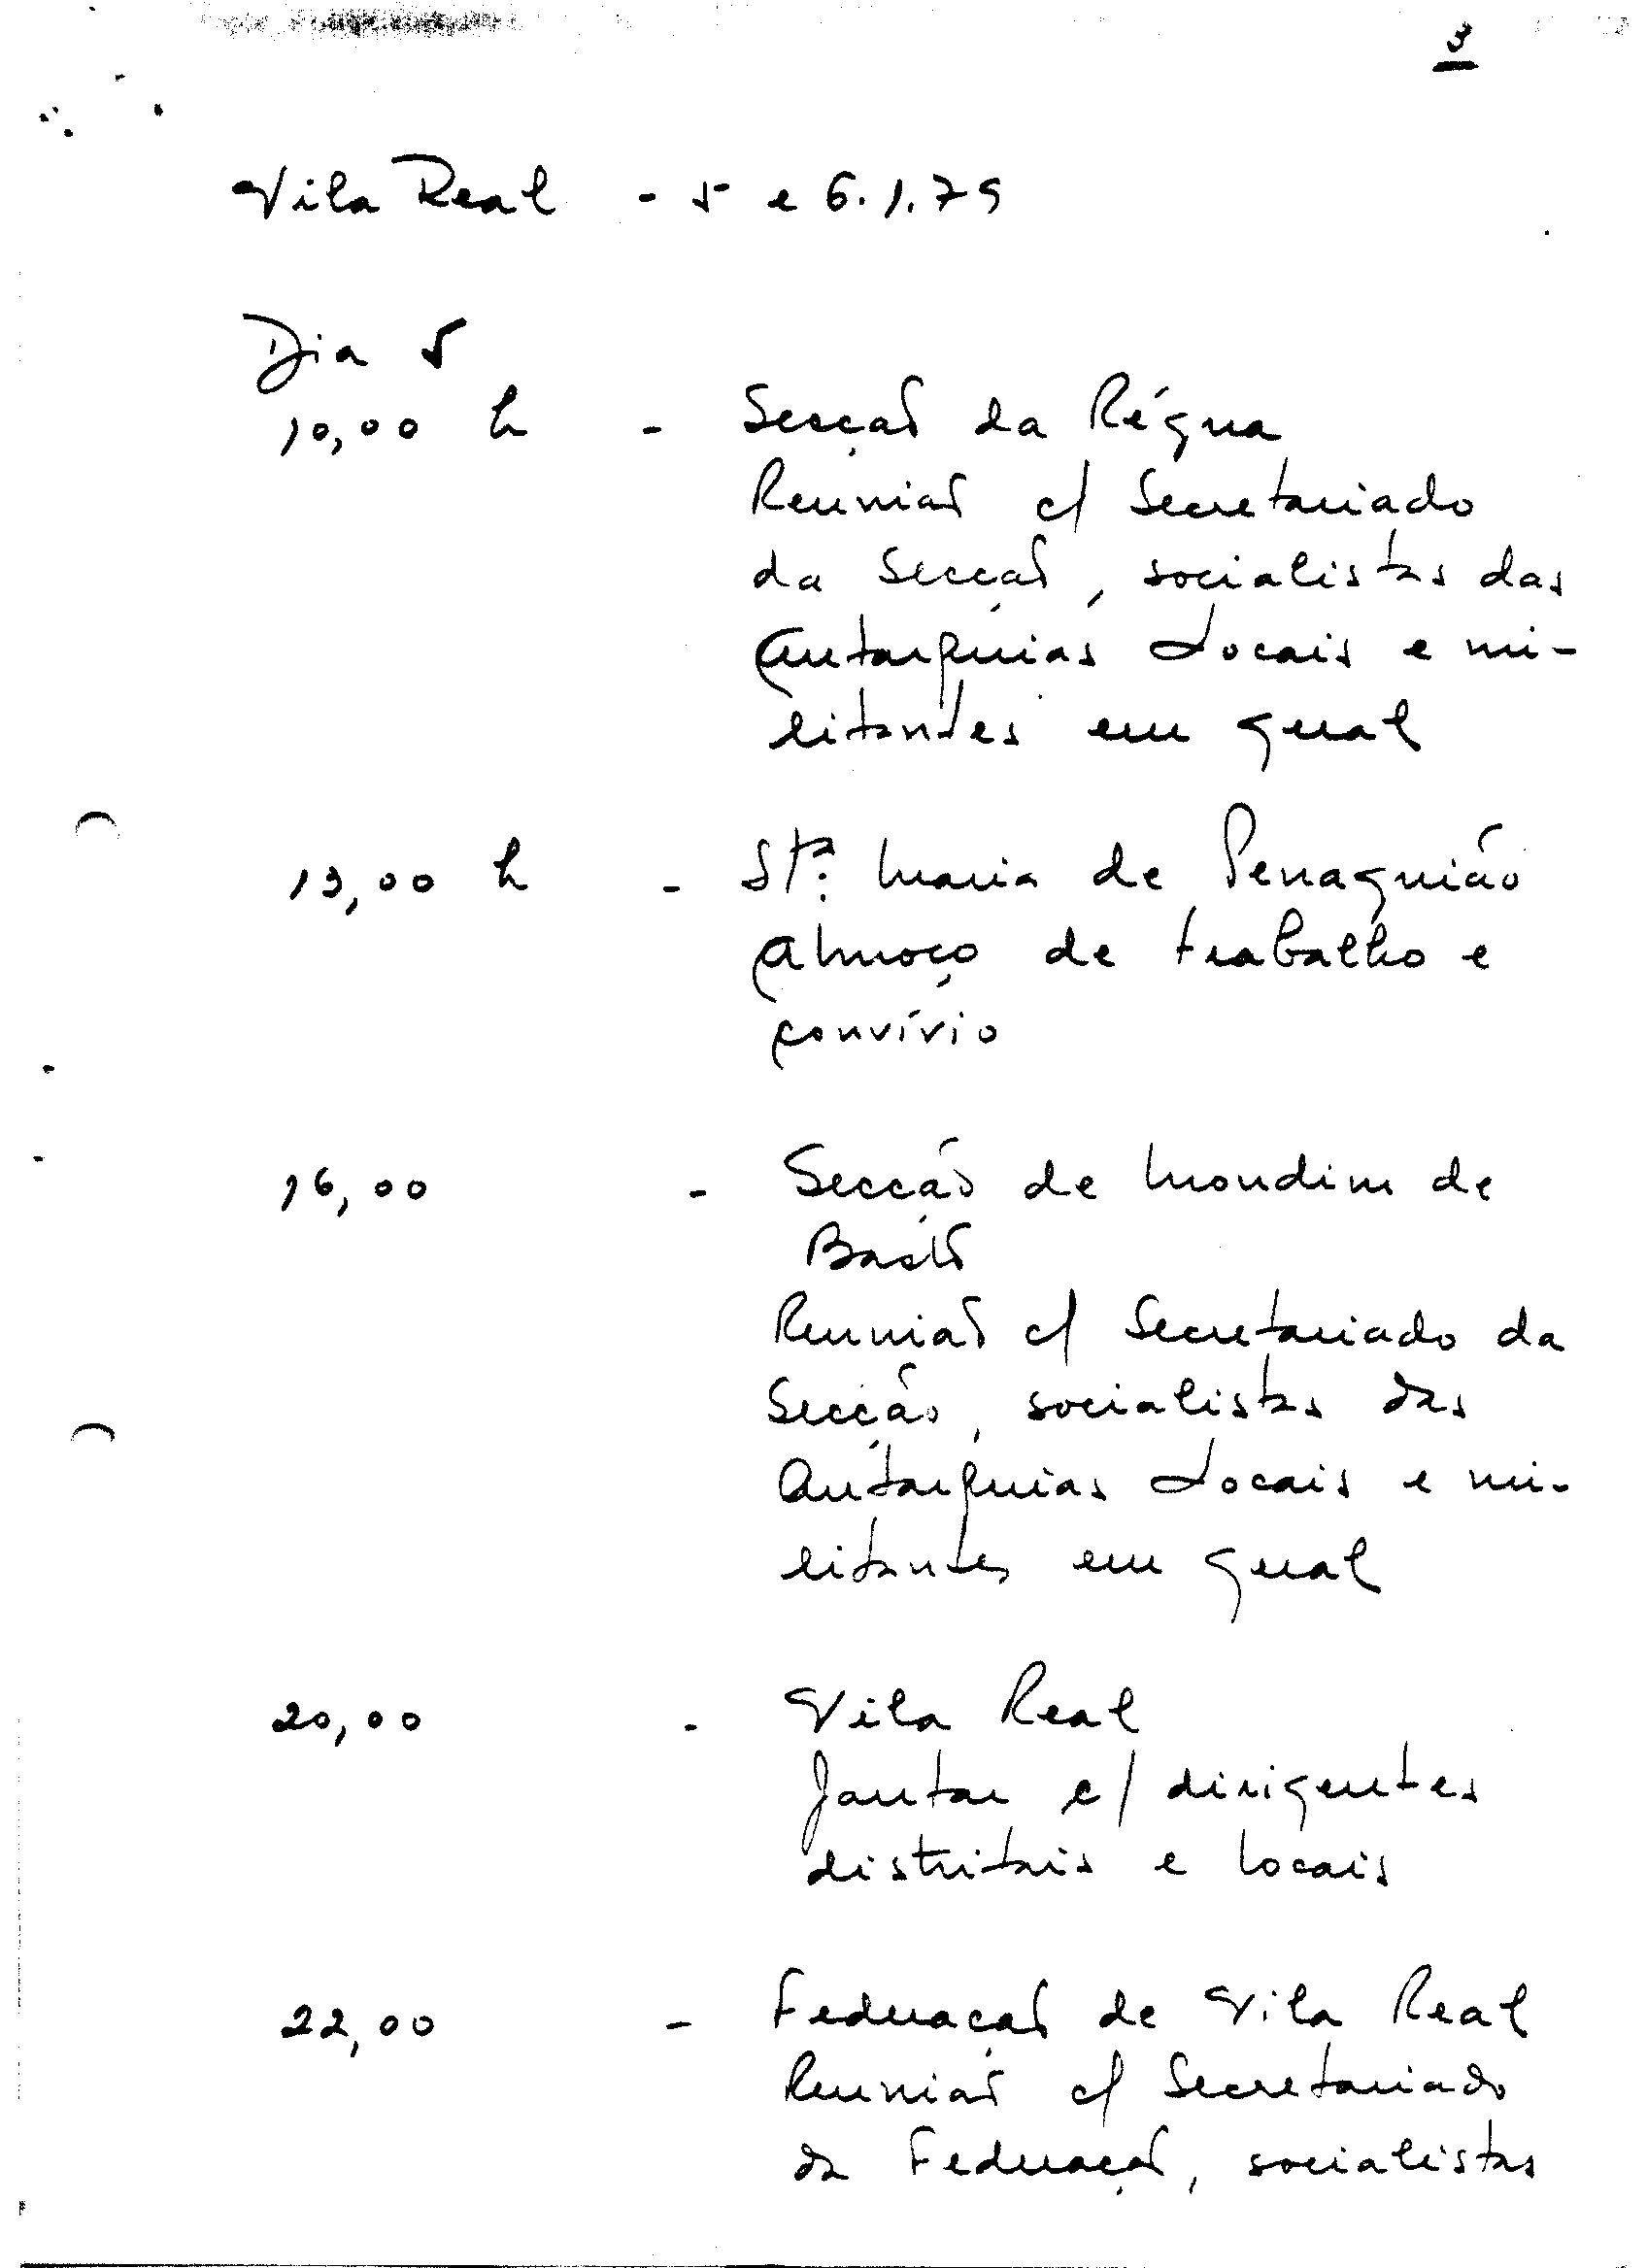 3
Vila Real - 5 e 6.1.79
Dia 5
10,00 h - Secção da Régua
Reunião c/ Secretariado
da Secção, socialistas das
Autarquias Locais e mi-
litantes em geral
13,00 h - Stª. Maria de Penaguião
Almoço de trabalho e
convívio
16,00 - Secção de Mondim de
Basto
Reunião c/ Secretariado da
Secção, socialistas das
Autarquias Locais e mi-
litantes em geral
20,00 - Vila Real
Jantar c/ dirigentes
distritais e locais
22,00 - Federação de Vila Real
Reunião c/ Secretariado
da Federação, socialistas